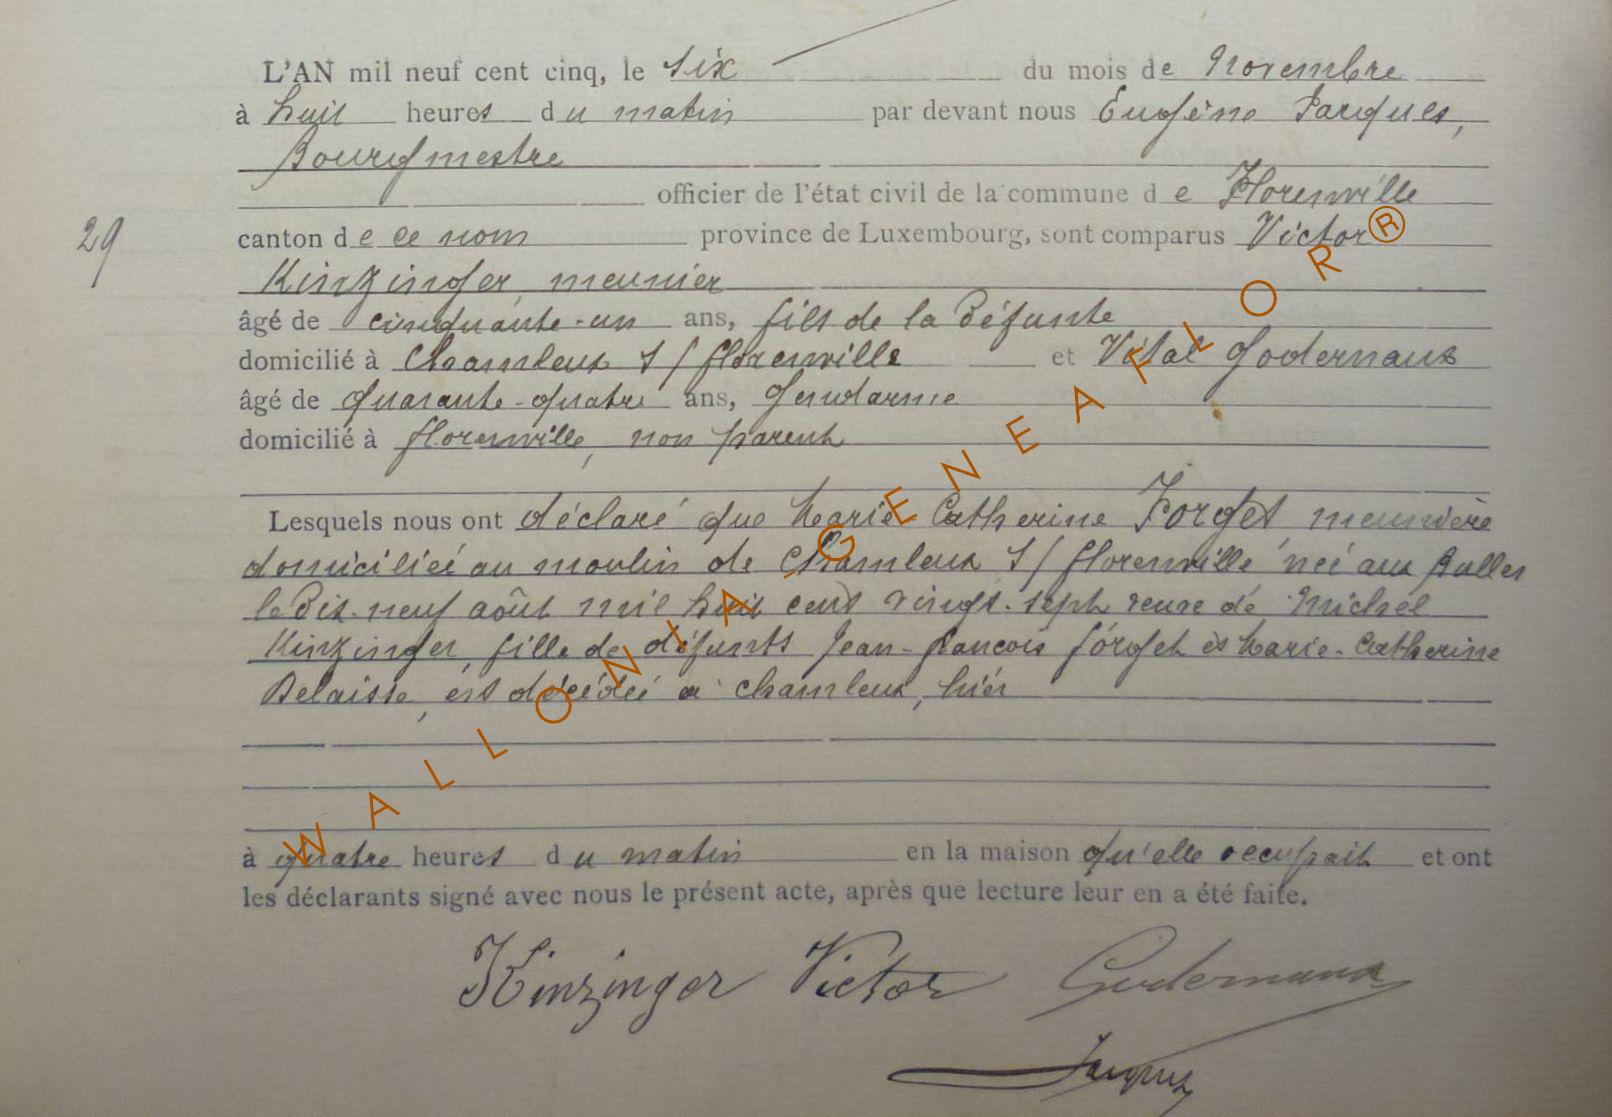 L'AN mil neuf cent cinq, le six du mois de Novembre
à huit heures du matin par devant nous Eugène Jacques,
Bourgmestre
officier de l'état civil de la commune de Florenville
29
canton de ce nom province de Luxembourg, sont comparus Victor
Kinzinger, meunier
âgé de cinquante-un ans, fils de la défunte
domicilié à Chameleux s/ florenville et Vital Godernaux
âgé de quarante-quatre ans, Gendarme
domicilié à florenville, non parent
Lesquels nous ont déclaré que Marie Catherine Forget, meunière
domiciliée au moulin de Chameleux s/ florenville née aux Bulles
le dix-neuf août mil huit cent vingt-sept veuve de Michel
Kinzinger, fille de défunts Jean-françois forget et Marie-Catherine
Delaisse, est décédée à chameleux, hier
à quatre heures du matin en la maison qu'elle occupait et ont
les déclarants signé avec nous le présent acte, après que lecture leur en a été faite.
Kinzinger Victor Godernaux
Jacques
WALLONIA-GENEAFLOR®